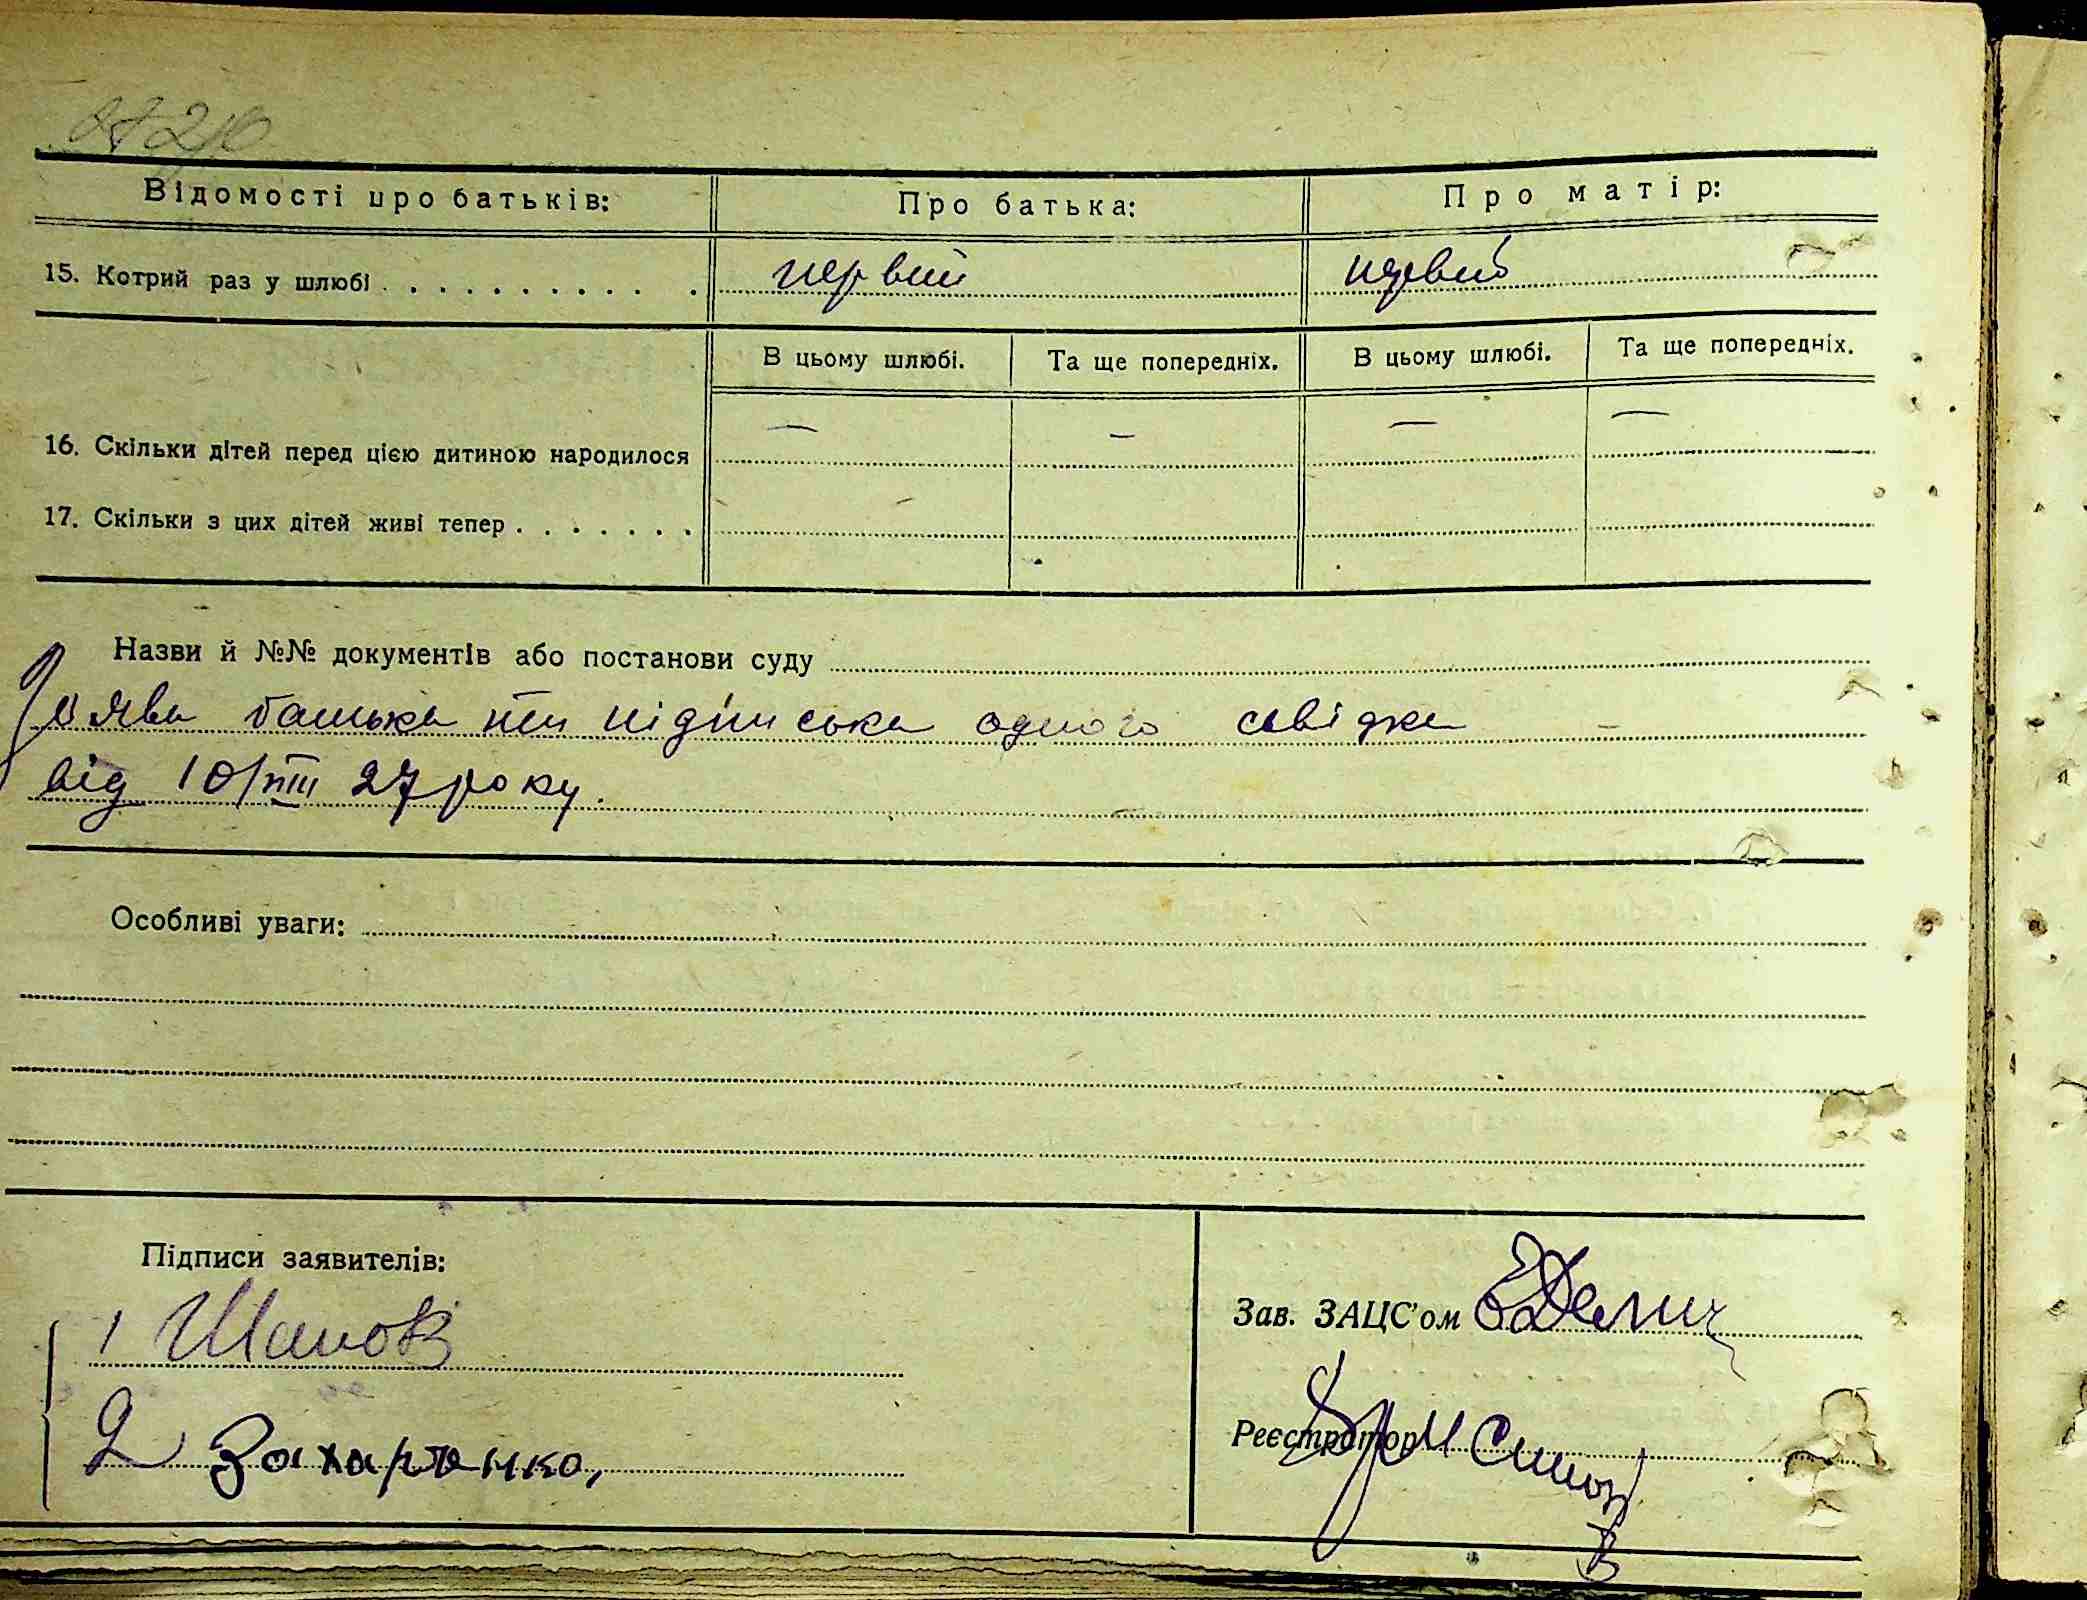 Відомості про батьків: Про батька: Про матір:
15. Котрий раз у шлюбі первий первий
В цьому шлюбі. Та ще попередніх. В цьому шлюбі. Та ще попередніх.
16. Скільки дітей перед цією дитиною народилося — — — —
17. Скільки з цих дітей живі тепер
Назви й №№ документів або постанови суду
Заява батька та підписька одного свідка
від 10/VIII 27 року.
Особливі уваги:
Підписи заявителів:
1 Шапов
2 Захарченко,
Зав. ЗАЦС'ом
Реєстратор